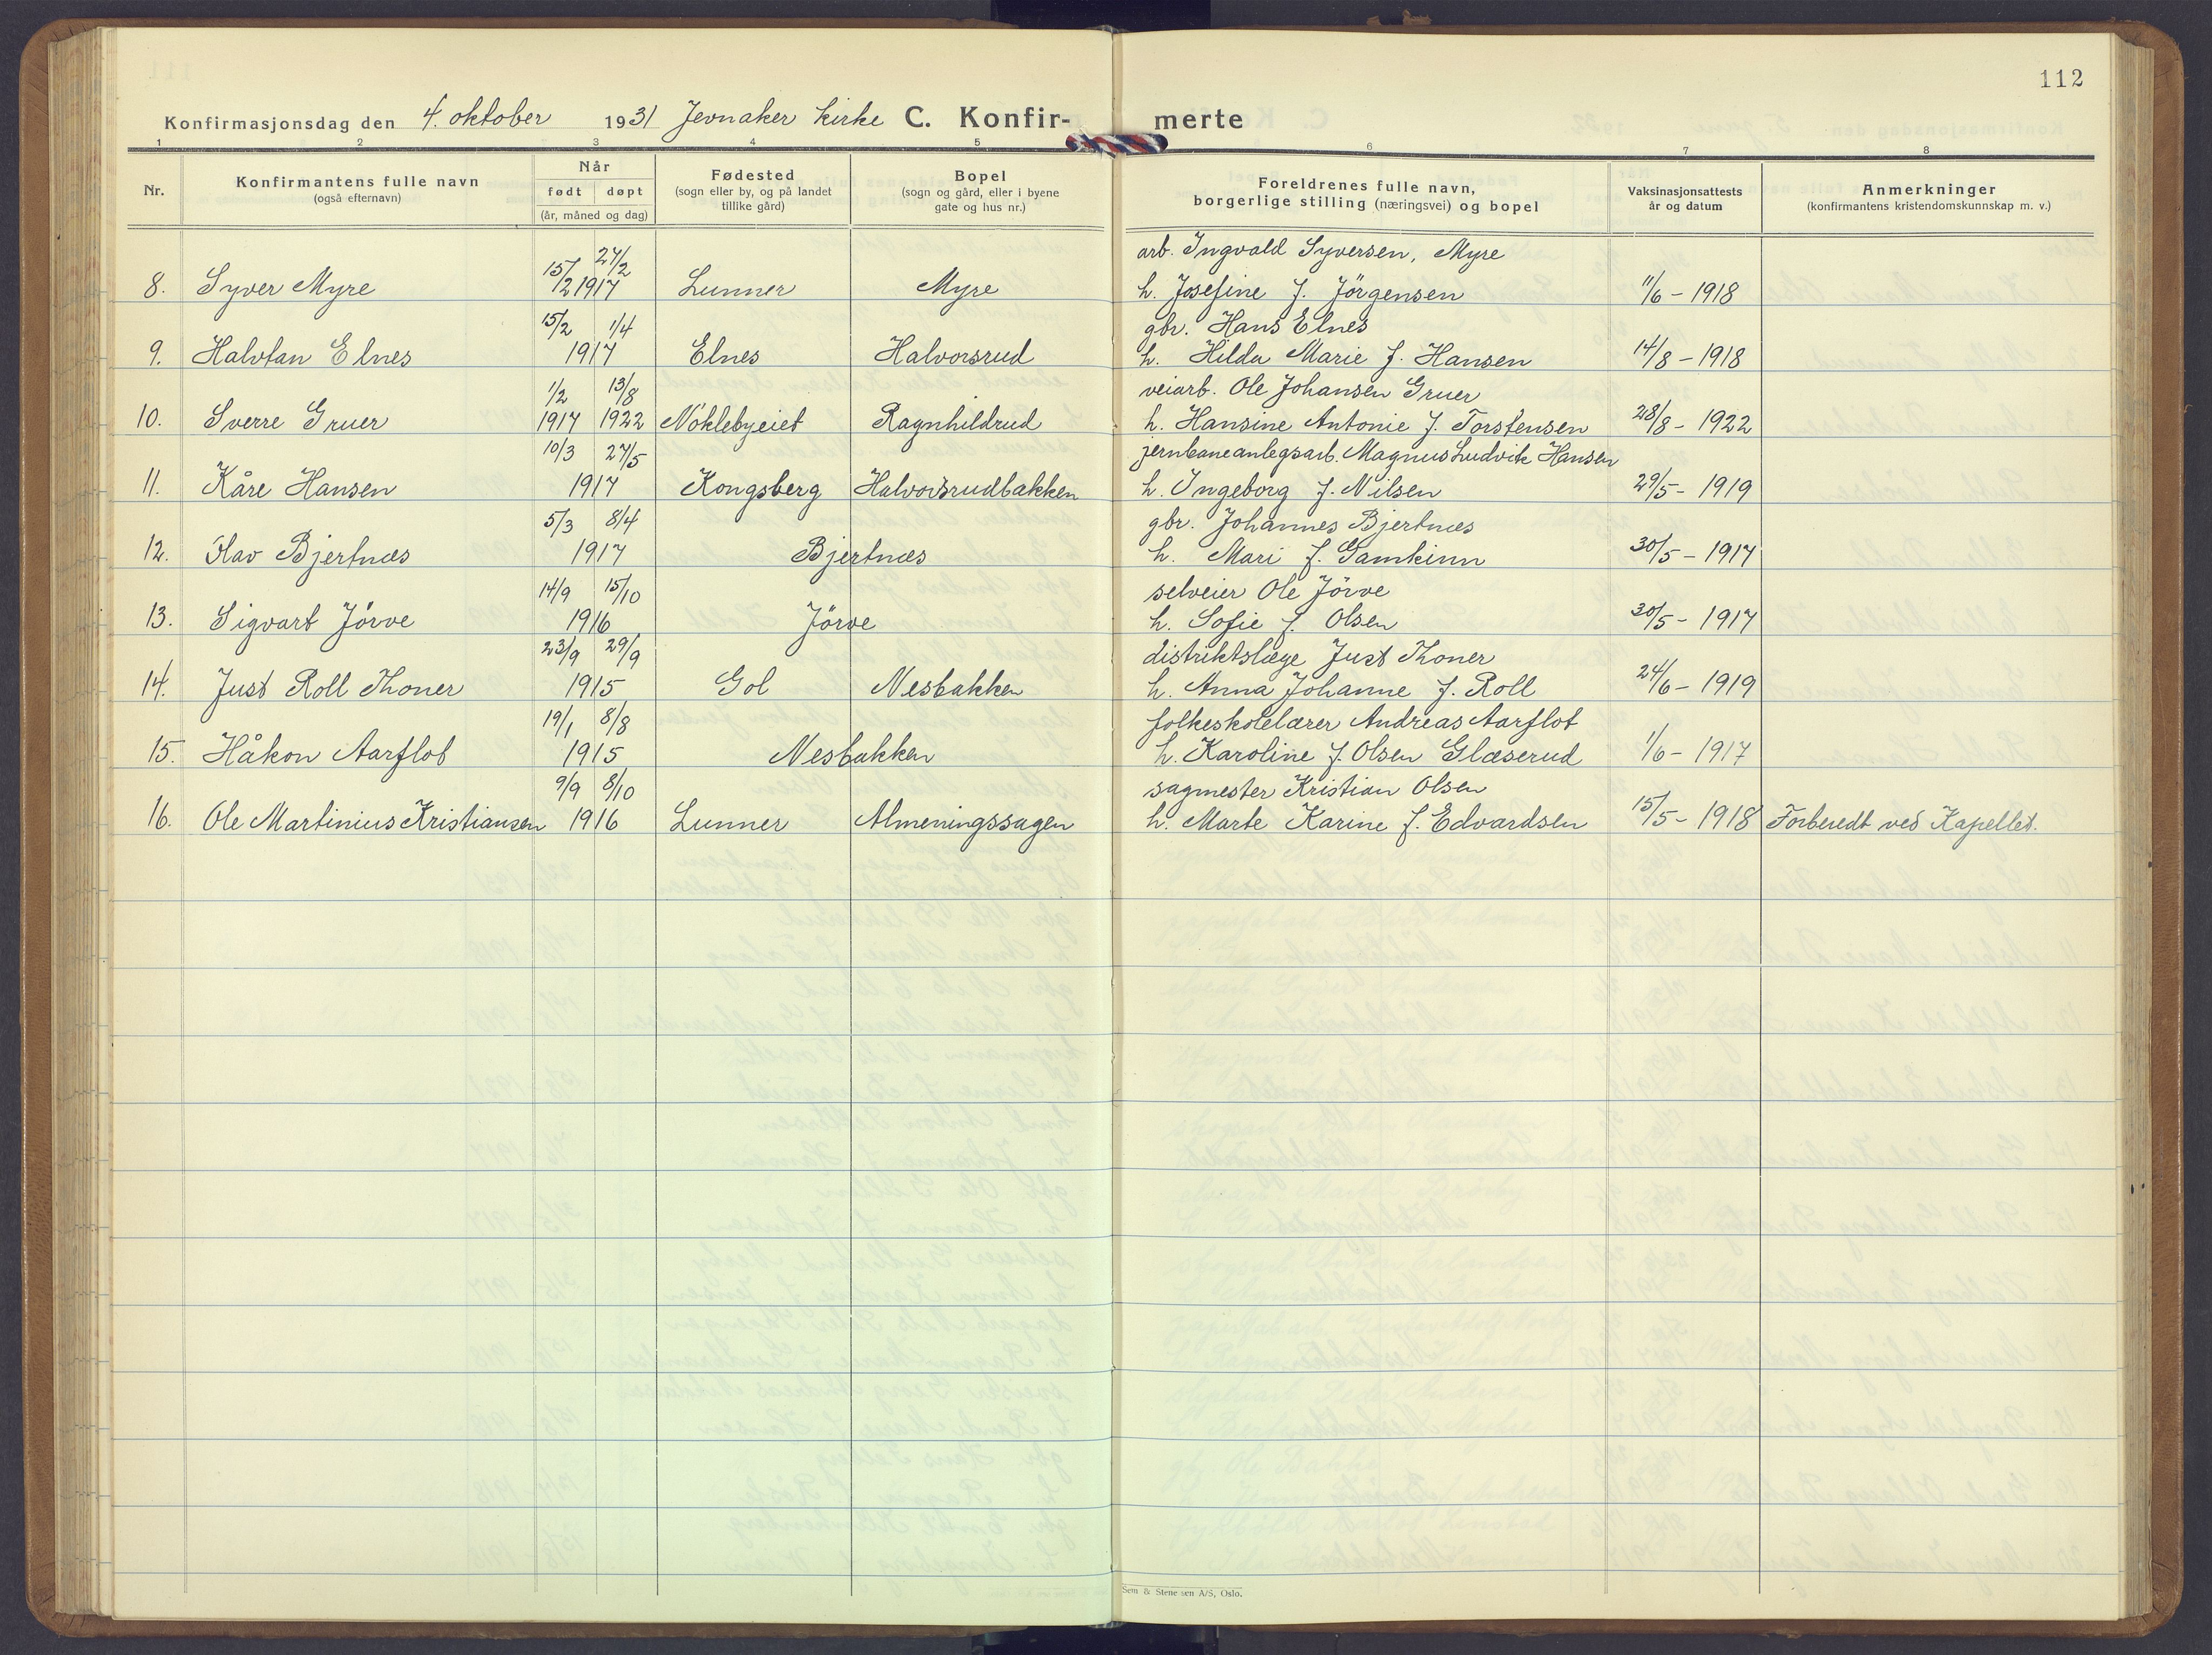 112
Konfirmasjonsdag den 4. oktober 1931 Jevnaker kirke C. Konfir- merte
1 2 3 4 5 6 7 8
Nr. Konfirmantens fulle navn (også efternavn) Når født døpt (år, måned og dag) Fødested (sogn eller by, og på landet tillike gård) Bopel (sogn og gård, eller i byene gate og hus nr.) Foreldrenes fulle navn, borgerlige stilling (næringsvei) og bopel Vaksinasjonsattests år og datum Anmerkninger (konfirmantens kristendomskunnskap m. v.)
15/2 27/2 arb. Ingvald Syversen, Myre
8. Syver Myre 1917 Lunner Myre h. Josefine f. Jörgensen 11/6 - 1918
15/2 1/4 gbr. Hans Elnes
9. Halvfan Elnes 1917 Elnes Halvorsrud h. Hilda Marie f. Hansen 14/8 - 1918
1/2 13/8 veiarb. Ole Johansen Gruer
10. Sverre Gruer 1917 1922 Nöklebyeiet Ragnhildrud h. Hansine Antonie f. Torstensen 28/8 - 1922
10/3 27/5 jernbaneanlegsarb. Magnus Ludvik Hansen
11. Kåre Hansen 1917 Kongsberg Halvorsrudbakken h. Ingeborg f. Nilsen 29/5 - 1919
5/3 8/4 gbr. Johannes Bjertnæs
12. Olav Bjertnæs 1917 Bjertnæs h. Mari f. Gamkinn 30/5 - 1917
14/9 15/10 selveier Ole Jörve
13. Sigvart Jörve 1916 Jörve h. Sofie f. Olsen 30/5 - 1917
23/9 29/9 distriktslæge Just Thoner
14. Just Roll Thoner 1915 Gol Nesbakken h. Anna Johanne f. Roll 24/6 - 1919
19/1 8/8 folkeskolelærer Andreas Aarflot
15. Håkon Aarflot 1915 Nesbakken h. Karoline f. Olsen Glæserud 1/6 - 1917
9/9 8/10 sagmester Kristian Olsen
16. Ole Martinius Kristiansen 1916 Lunner Almeningssagen h. Marte Karine f. Edvardsen 15/5 - 1918 Forberedt ved Kapellet.
Sem & Stenersen A/S, Oslo.